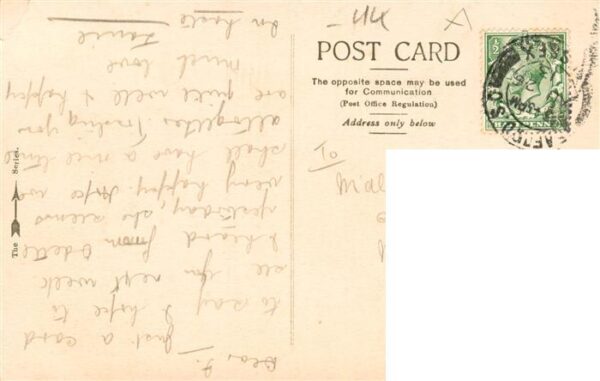 -44 X
POST CARD
The opposite space may be used
for Communication
(Post Office Regulation)
Address only below
To
The Series.
Dear
Just a card
to say I hope to
see you next week
I heard from Odette
yesterday, she seems
very happy. Hope we
shall have a nice time
altogether. Trusting you
are quite well & happy
Much love
In haste